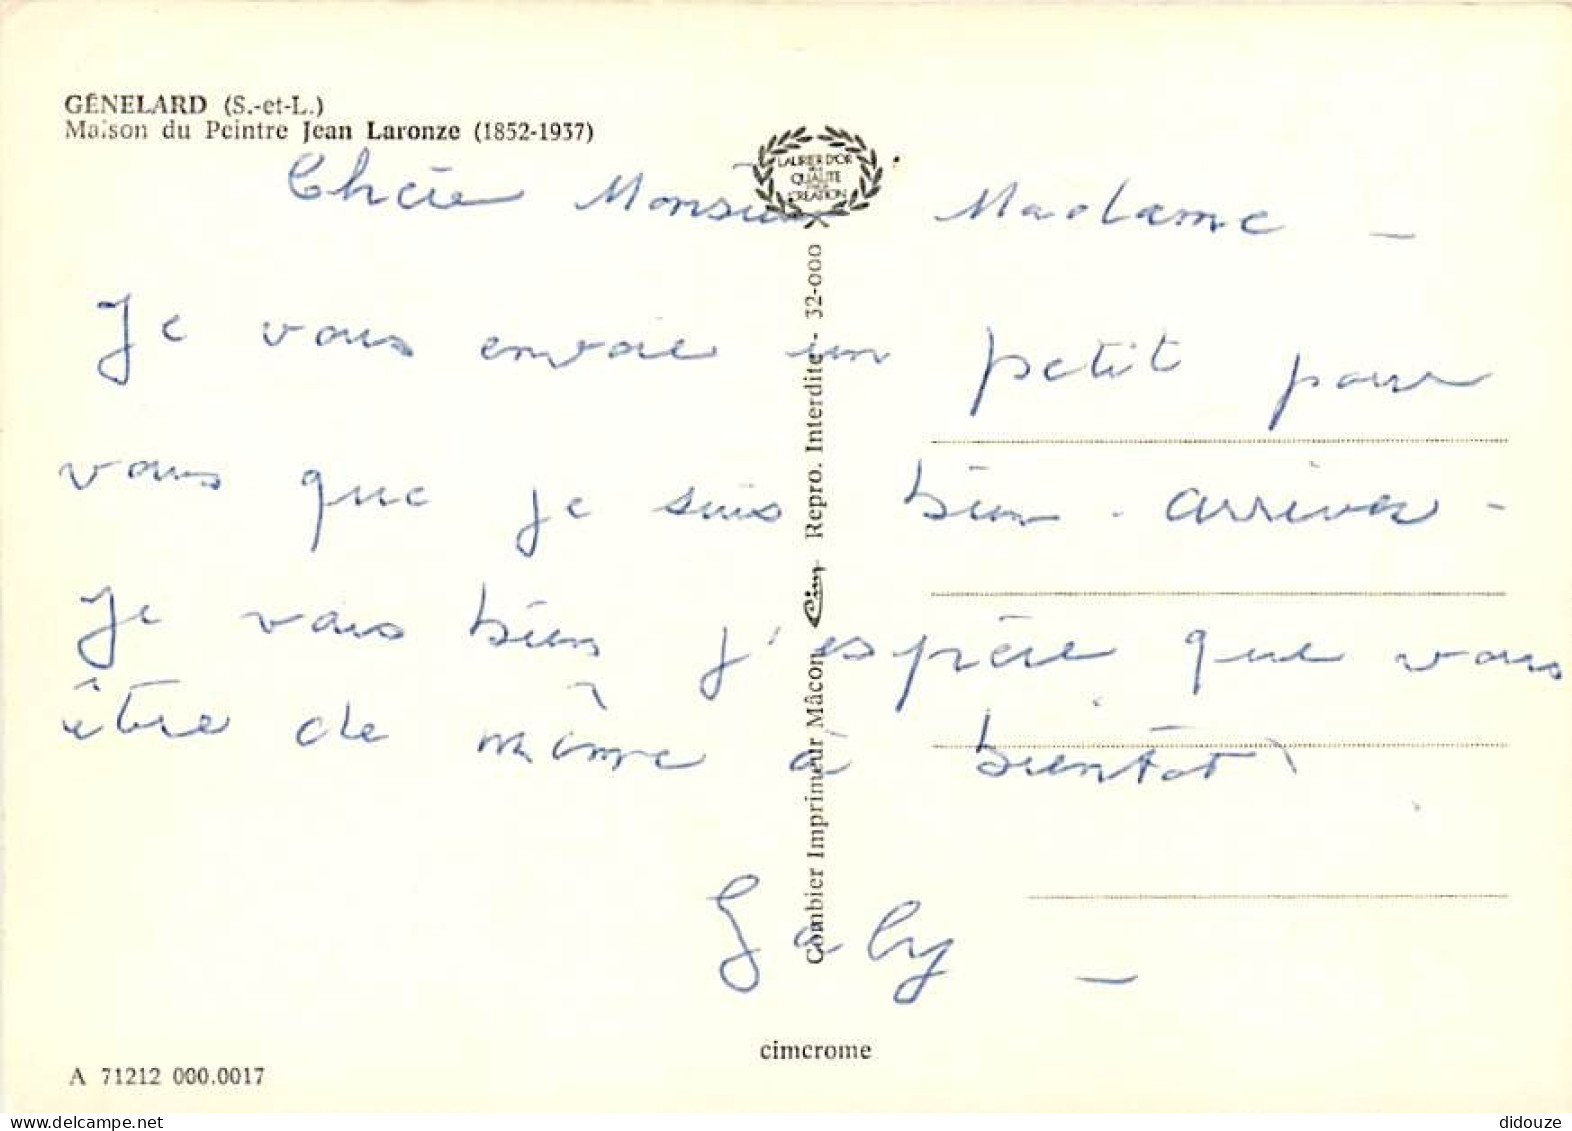 GÉNELARD (S.-et-L.)
Maison du Peintre Jean Laronze (1852-1937)
LAURIER D'OR
QUALITE
CREATION
Chère Monsieur Madame -
Je vous envoie un petit pour
vous que je suis bien arriver -
Je vais bien j'espère que vous
être de même à bientôt
Gaby -
Combier Imprimeur Mâcon Cim Repro. Interdite - 32-000
cimcrome
A 71212 000.0017
didouze